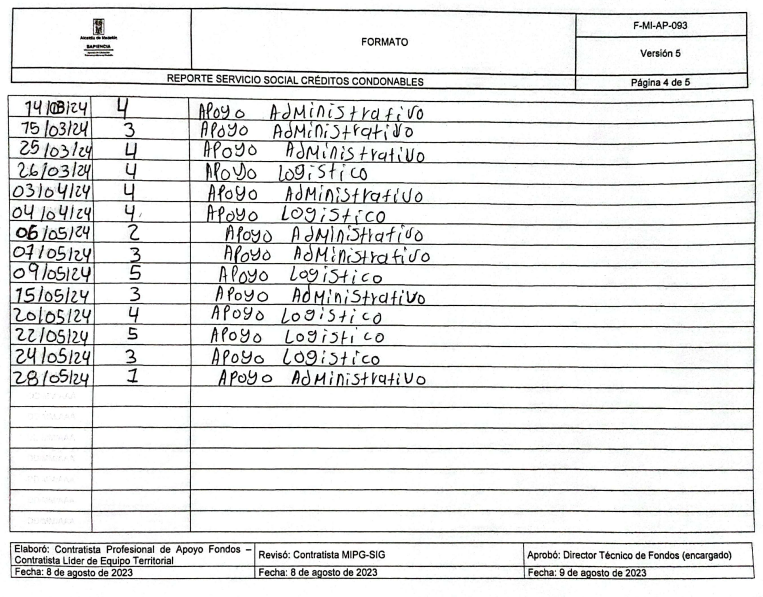 Alcaldía de Medellín
SAPIENCIA
FORMATO
F-MI-AP-093
Versión 5
REPORTE SERVICIO SOCIAL CRÉDITOS CONDONABLES
Página 4 de 5
14/03/24 4 Apoyo Administrativo
15/03/24 3 Apoyo Administrativo
25/03/24 4 Apoyo Administrativo
26/03/24 4 Apoyo Logistico
03/04/24 4 Apoyo Administrativo
04/04/24 4 Apoyo Logistico
06/05/24 2 Apoyo Administrativo
07/05/24 3 Apoyo Administrativo
09/05/24 5 Apoyo Logistico
15/05/24 3 Apoyo Administrativo
20/05/24 4 Apoyo Logistico
22/05/24 5 Apoyo Logistico
24/05/24 3 Apoyo Logistico
28/05/24 1 Apoyo Administrativo
Elaboró: Contratista Profesional de Apoyo Fondos –
Contratista Líder de Equipo Territorial
Revisó: Contratista MIPG-SIG
Aprobó: Director Técnico de Fondos (encargado)
Fecha: 8 de agosto de 2023
Fecha: 8 de agosto de 2023
Fecha: 9 de agosto de 2023